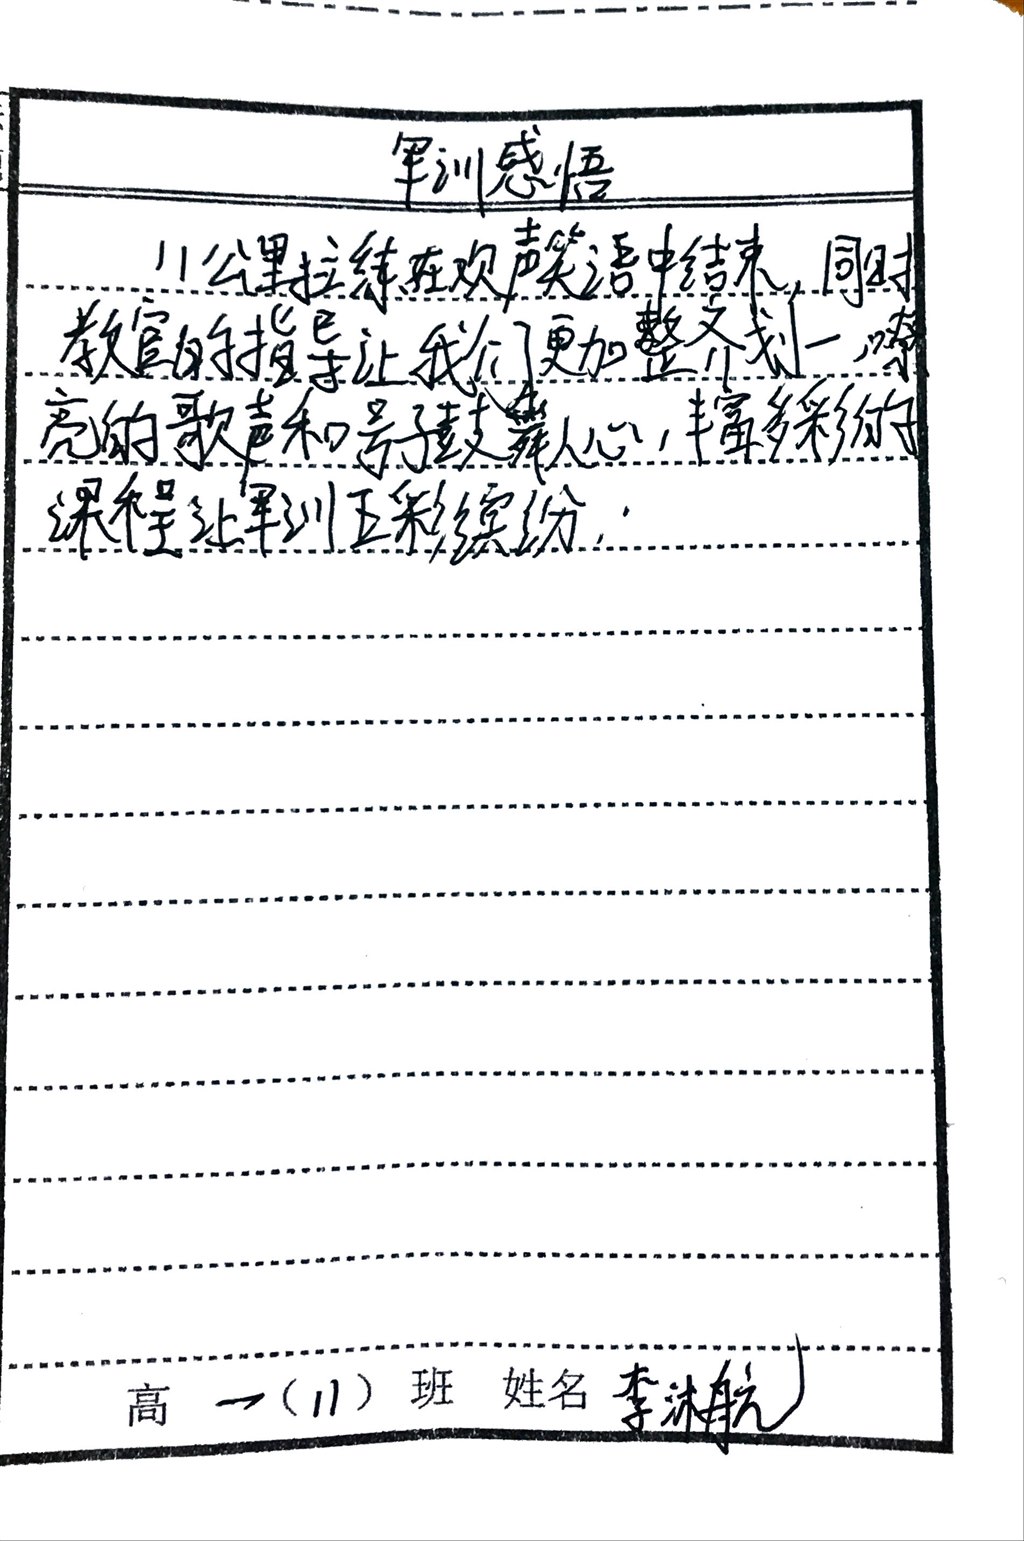 军训感悟
11公里拉练在欢声笑语中结束，同时
教官的指导让我们更加整齐划一，嘹
亮的歌声和号子鼓舞人心，丰富多彩的
课程让军训五彩缤纷.
高一(11)班 姓名 李沐航